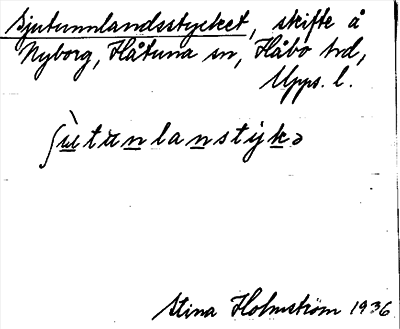 Sjutunnlandsstycket, skifte å
Nyborg, Håtuna sn, Håbo hd,
Upps. l.
ʃùtɯnlanstykə
Stina Holmström 1936